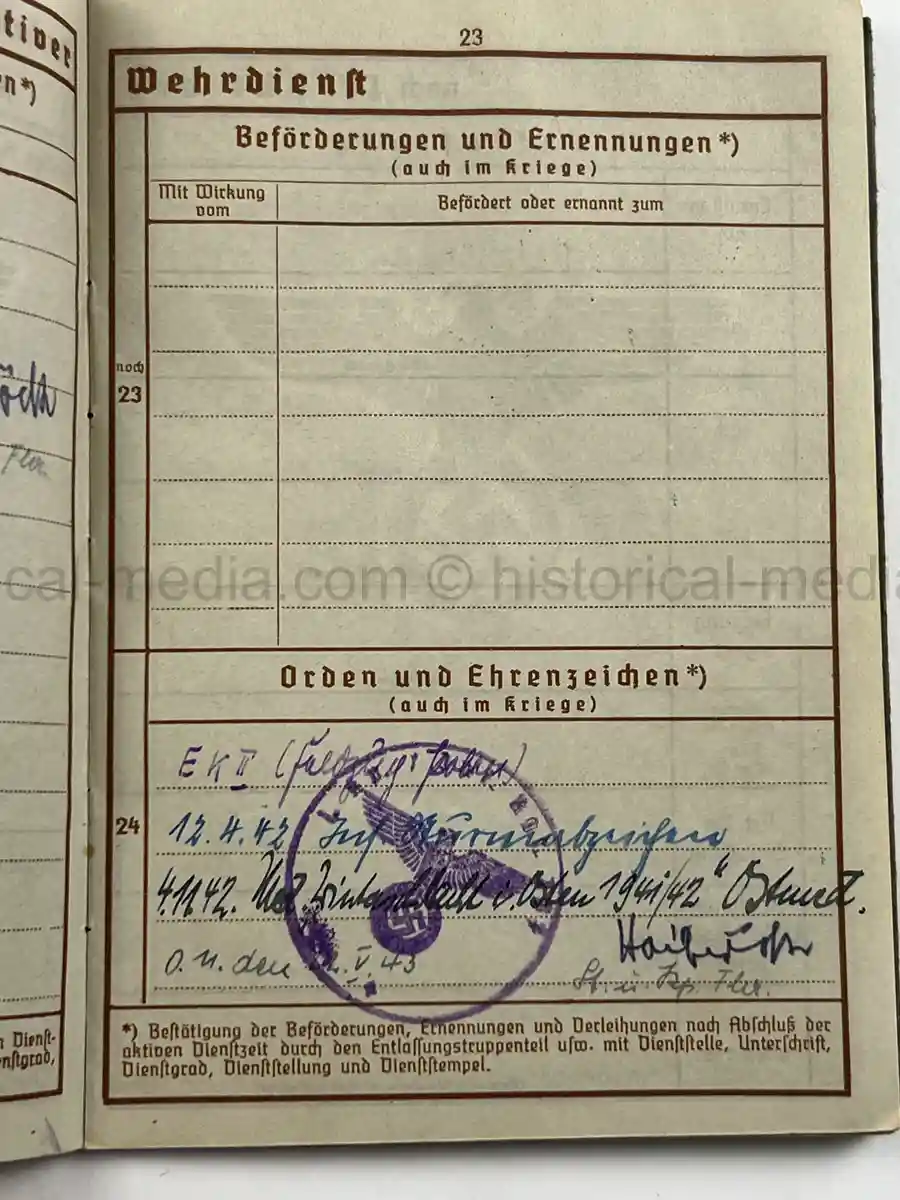 23
tiver
n*)
Wehrdienst
Beförderungen und Ernennungen*)
(auch im Kriege)
Mit Wirkung
vom
Befördert oder ernannt zum
noch
23
cal-media.com © historical-media
Orden und Ehrenzeichen*)
(auch im Kriege)
24
E K II (Feldzug Polen)
12.4.42 Inf. Sturmabzeichen
4.11.42. Med. Winterschlacht i. Osten 1941/42 "Ostmed.
O.U. den 12.V.43
St. u. Kp. Fhr.
*) Bestätigung der Beförderungen, Ernennungen und Verleihungen nach Abschluß der
aktiven Dienstzeit durch den Entlassungstruppenteil usw. mit Dienststelle, Unterschrift,
Dienstgrad, Dienststellung und Dienststempel.
n Dienst-
nstgrad,